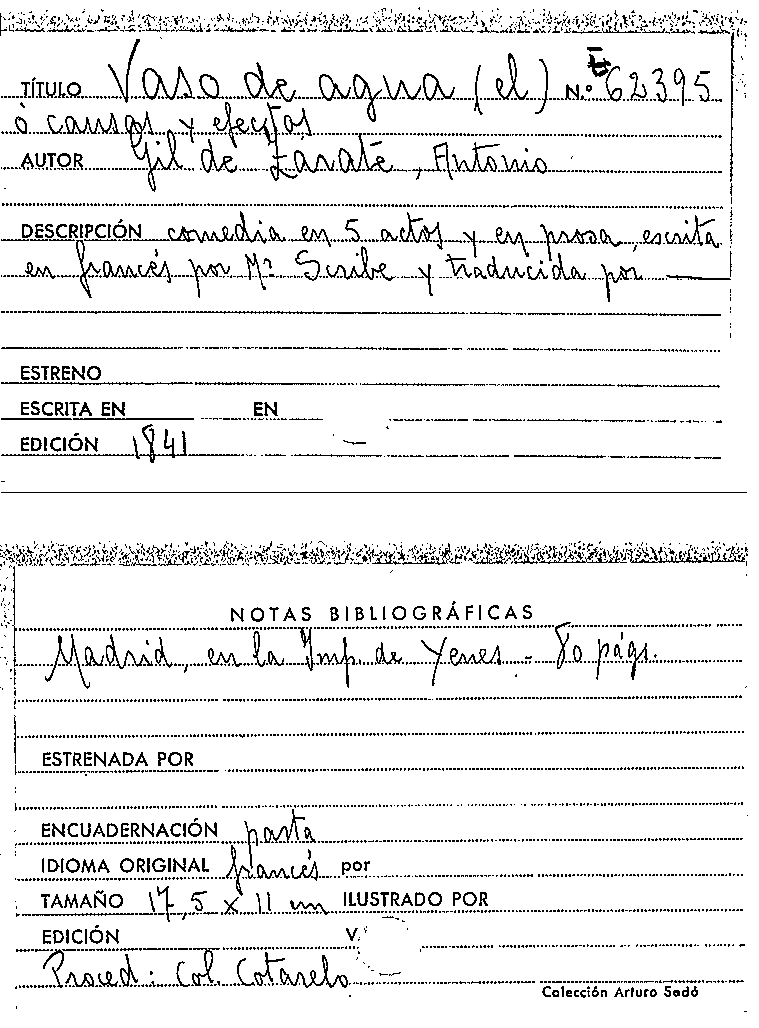 TÍTULO Vaso de agua (el) N.º 62395
ò causas y efectos
AUTOR Gil de Zárate, Antonio
DESCRIPCIÓN comedia en 5 actos y en prosa, escrita
en francés por Mr. Scribe y traducida por —
ESTRENO
ESCRITA EN EN
EDICIÓN 1841
NOTAS BIBLIOGRÁFICAS
Madrid, en la Imp. de Yenes - 80 págs.
ESTRENADA POR
ENCUADERNACIÓN pasta
IDIOMA ORIGINAL francés por
TAMAÑO 17,5 x 11 cm ILUSTRADO POR
EDICIÓN V.
Proced: Col. Cotarelo
Colección Arturo Sedó